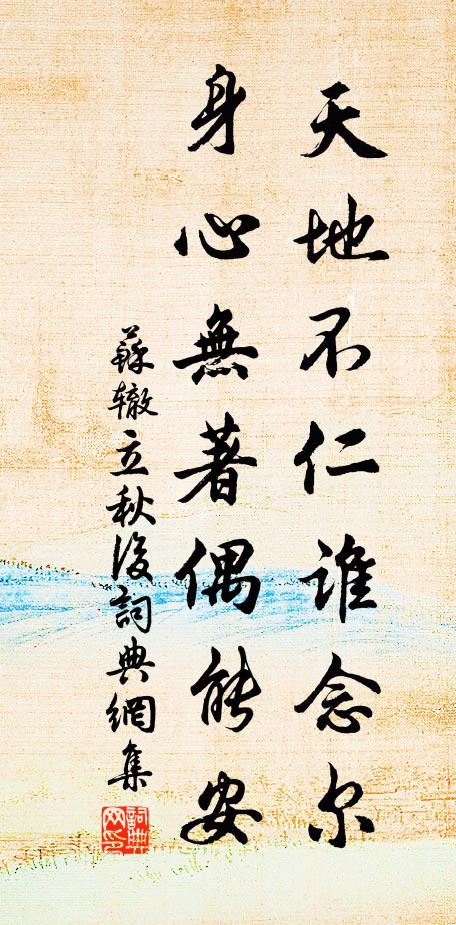 天地不仁谁念尔
身心無著偶能安
蘇辙立秋後詞典網集
詞典网印